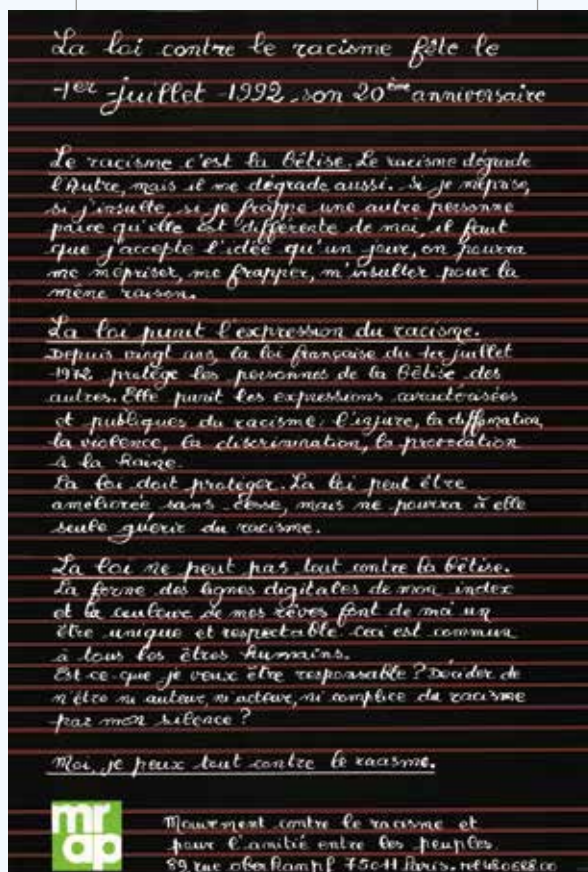 La loi contre le racisme fête le
1er juillet 1992 son 20ème anniversaire
Le racisme c'est la bêtise. Le racisme dégrade
l'Autre, mais il me dégrade aussi. Si je méprise,
si j'insulte, si je frappe une autre personne
parce qu'elle est différente de moi, il faut
que j'accepte l'idée qu'un jour, on pourra
me mépriser, me frapper, m'insulter pour la
même raison.
La loi punit l'expression du racisme.
Depuis vingt ans, la loi française du 1er juillet
1972 protège les personnes de la bêtise des
autres. Elle punit les expressions caractérisées
et publiques du racisme: l'injure, la diffamation,
la violence, la discrimination, la provocation
à la haine.
La loi doit protéger. La loi peut être
améliorée sans cesse, mais ne pourra à elle
seule guérir du racisme.
La loi ne peut pas tout contre la bêtise.
La forme des lignes digitales de mon index
et la couleur de mes rêves font de moi un
être unique et respectable. Ceci est commun
à tous les êtres humains.
Est-ce-que je veux être responsable? Décider de
n'être ni auteur, ni acteur, ni complice du racisme
par mon silence?
Moi, je peux tout contre le racisme.
mrap
Mouvement contre le racisme et
pour l'amitié entre les peuples
89 rue oberkampf 75011 Paris.